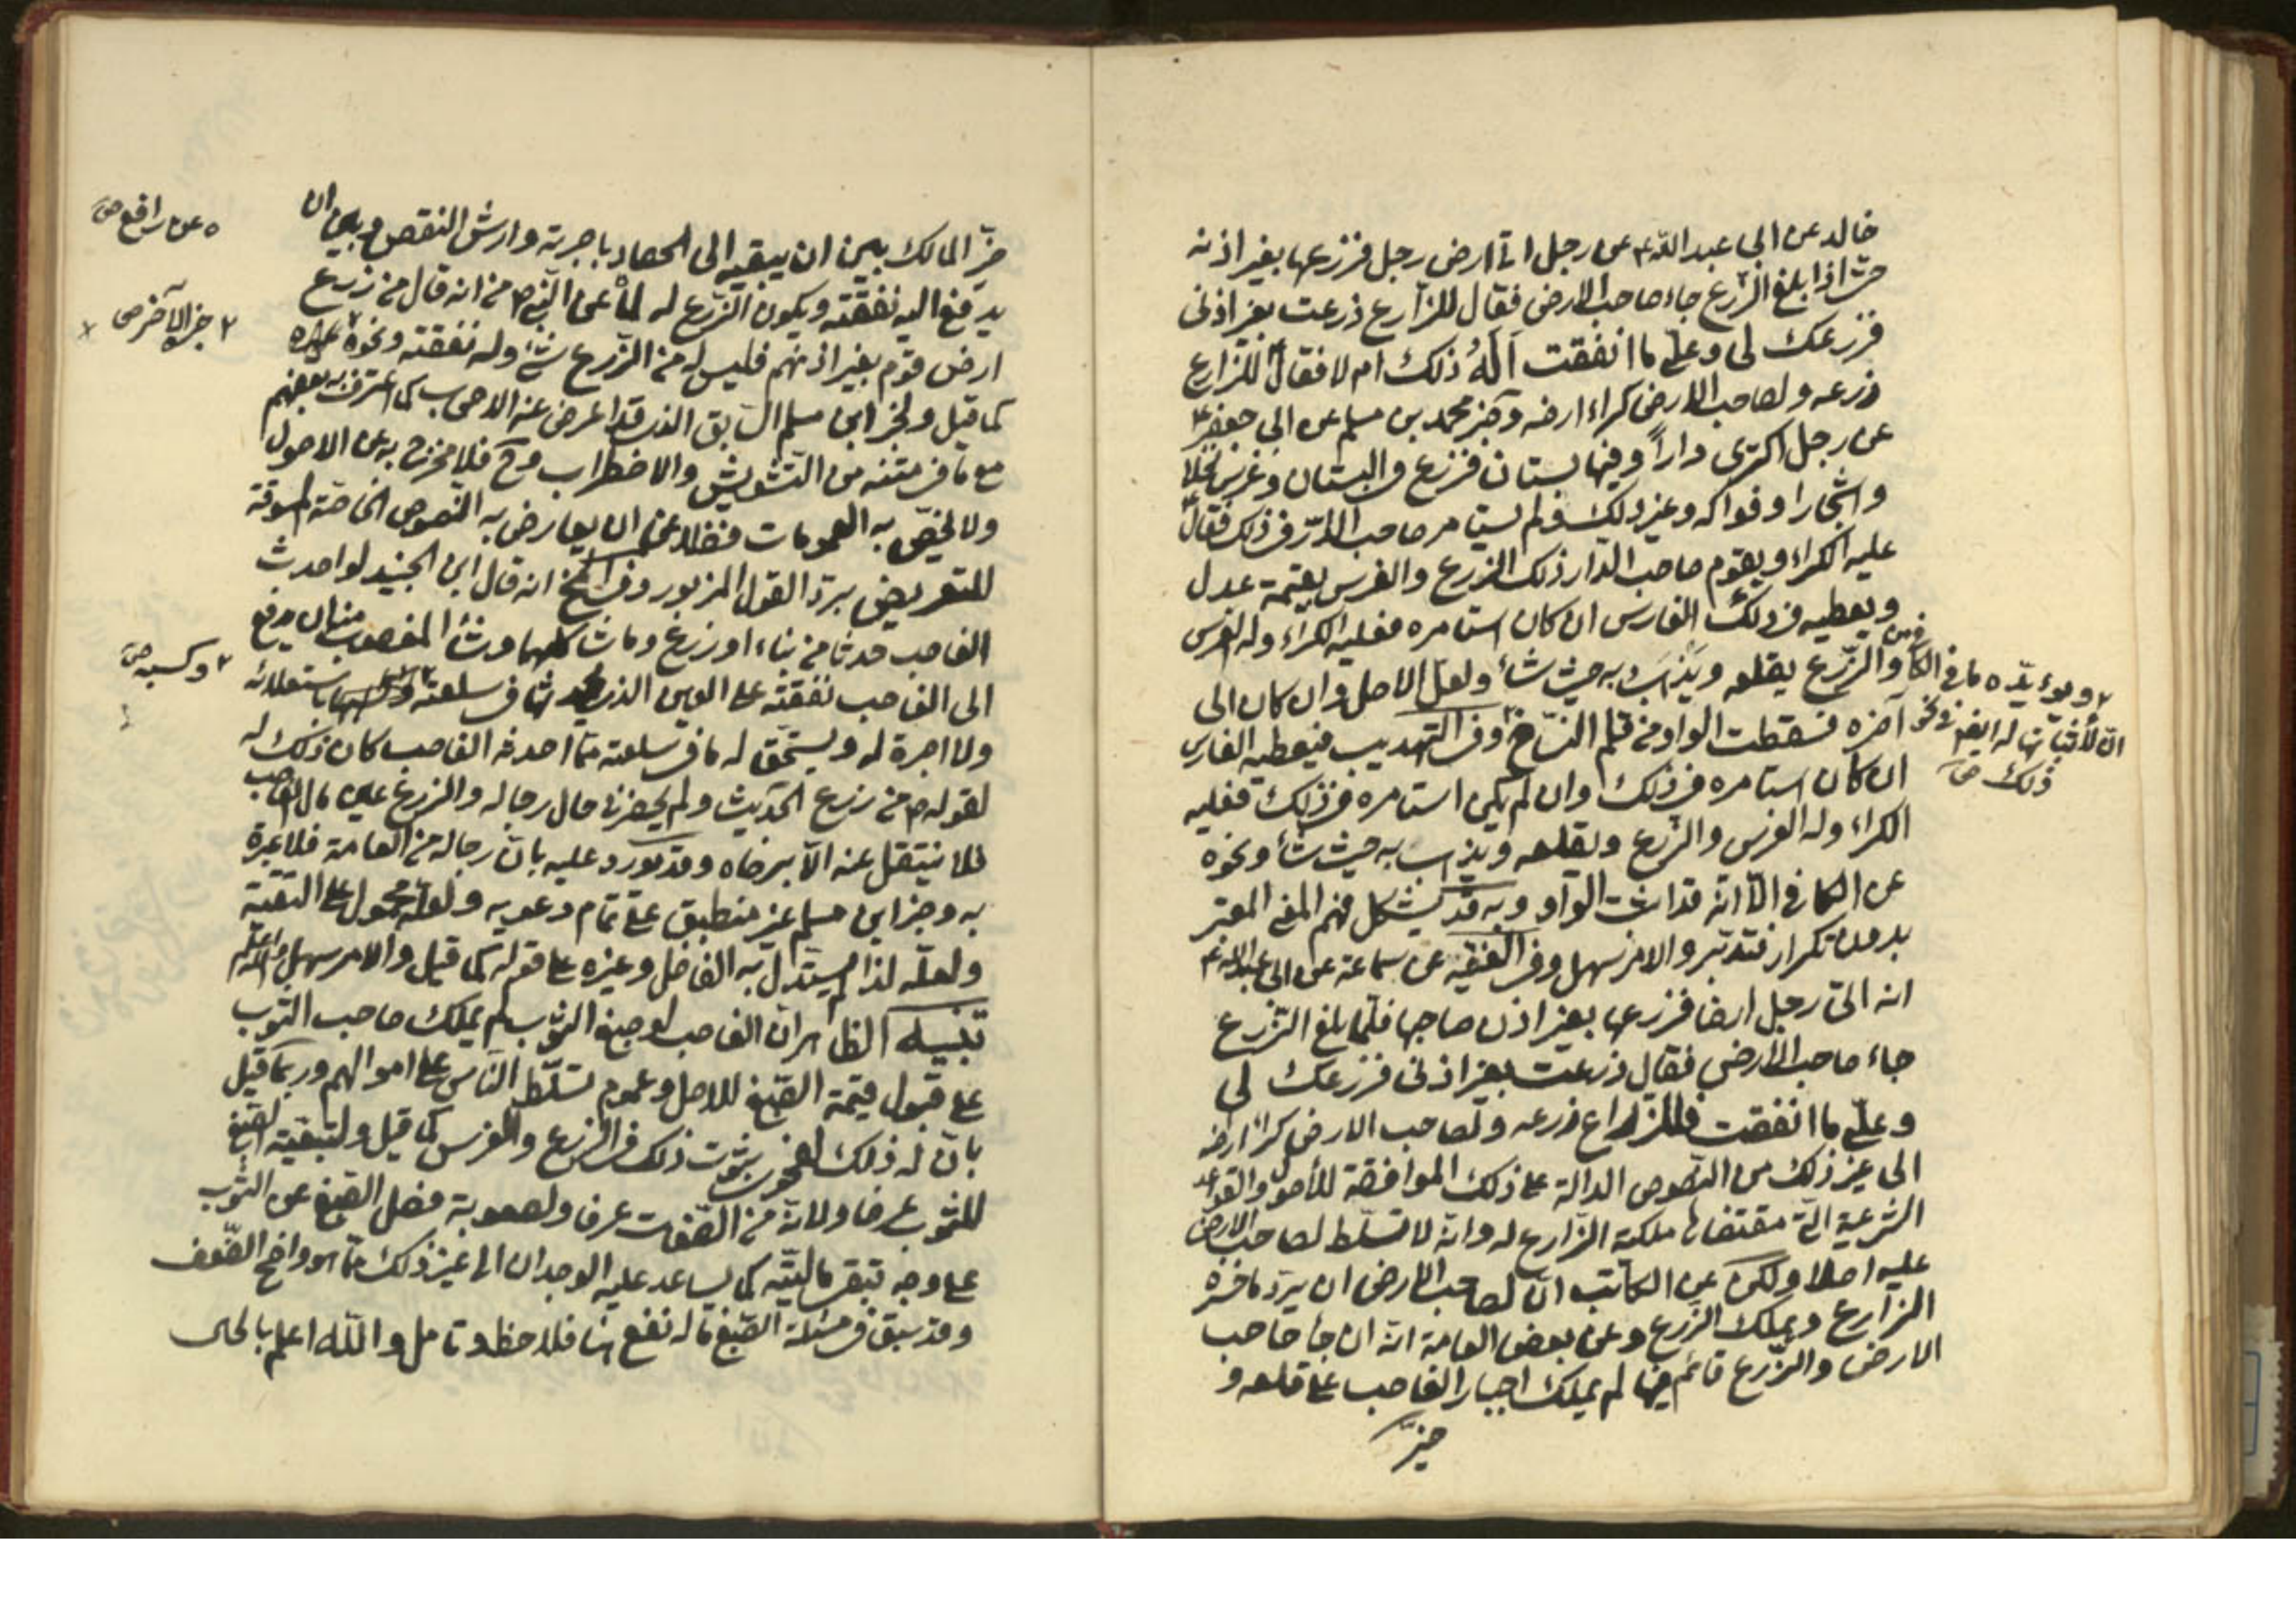 خالد عن ابی عبد الله ع عن رجل اتی ارض رجل فزرعها بغیر اذنه
حتی اذا بلغ الزرع جاء صاحب الارض فقال للزارع زرعت بغیر اذنی
فزرعک لی و علیّ ما انفقت اَلَهُ ذلک ام لا فقال ع للزارع
زرعه و لصاحب الارض کراء ارضه و خبر محمد بن مسلم عن ابی جعفر ع
عن رجل اکتری داراً و فیها بستان فزرع فی البستان و غرس نخلا
و اشجارا و فواکه و غیر ذلک و لم یستامر صاحب الدار فی ذلک فقال ع
علیه الکراء و یقوم صاحب الدار ذلک الزرع و الغرس بقیمة عدل
و یعطیه فی ذلک الغارس ان کان استامره فعلیه الکراء و له الغرس
و الزرع یقلعه و یذهب به حیث شاء و لعل الاصل و ان کان الی
آخره فسقطت الواو من قلم النسّاخ و فی التهذیب فیعطیه الغارس
ان کان استامره فی ذلک و ان لم یکن استامره فی ذلک فعلیه
الکراء و له الغرس و الزرع و یقلعه و یذهب به حیث شاء و نحوه
عن الکافی الّا انّه قد اثبت الواو و به قد یشکل فهم المعنی المعتبر
بدون تکرار فتدبّر و الامر سهل و فی الفقیه عن سماعة عن ابی عبد الله ع
انه اتی رجل ارضا فزرعها بغیر اذن صاحبها فلمّا بلغ الزّرع
جاء صاحب الارض فقال زرعت بغیر اذنی فزرعک لی
و علیّ ما انفقت فللزارع زرعه و لصاحب الارض کراء ارضه
الی غیر ذلک من النصوص الدالة علی ذلک الموافقة للأصول و القواعد
الشرعیة التی مقتضاها ملکیة الزّارع له و انّه لا تسلّط لصاحب الارض
علیه اصلا و لکن عن الکاتب انّ لصاحب الارض ان یردّ ما خسره
الزارع و یملک الزرع و عن بعض العامة انّه ان جاء صاحب
الارض و الزّرع قائم فیها لم یملک اجبار الغاصب علی قلعه و
خیّر
و یؤیّده ما فی الکافی من
انّ لاثباتها له ایضا فی نحو
ذلک صح
خیّر المالک بین ان یبقیه الی الحصاد باجرته و ارش النقص و بین ان
یدفع الیه نفقته و یکون الزّرع له لما عن النّبی ص من انه قال من زرع
ارض قوم بغیر اذنهم فلیس له من الزّرع شیء و له نفقته و نحوه غیره
کما قیل و لخبر ابن مسلم السّابق الذی قد اعرض عنه الاصحاب کما اعترف به بعضهم
مع ما فی متنه من التّشویش و الاضطراب و ح فلا یخرج به عن الاصول
و لا یخصّ به العمومات فضلا عن ان یعارض به النّصوص الخاصّة المسوقة
للتعریض بردّ القول المزبور و فی انه قال ابن الجنید لو احدث
الغاصب حدثا من بناء او زرع و ما شاکلهما و شاء المغصوب منه ان یدفع
الی الغاصب نفقته علی العین الذی احدثها فی سلعته باستعلائه
و لا اجرة له و یستحقّ له ما فی سلعته ممّا احدثه الغاصب کان ذلک له
لقوله ص من زرع الحدیث و لم یحضرنا حال رجاله و الزرع عین مال الغاصب
فلا ینتقل عنه الّا برضاه و قد یورد علیه بانّ رجاله من العامة فلا عبرة
به و خبر ابن مسلم غیر منطبق علی تمام دعویه و لعلّه محمول علی التقیّة
و لعلّه لذا لم یستدلّ به الفاضل و غیره علی قوله کما قیل و الامر سهل و الله اعلم
تنبیه الظاهر انّ الغاصب لو صبغ الثّوب لم یملک صاحب الثوب
علی قبول قیمة الصّبغ للاصل و عموم تسلّط النّاس علی اموالهم و ربما قیل
بانّ له ذلک لفحوی ثبوت ذلک فی الزرع و الغرس کما قیل و لتبعیّة الصّبغ
للثوب عرفا و لانّه من الصّفات عرفا و لصعوبة فصل الصّبغ عن الثّوب
علی وجه تبقی مالیّته کما یساعد علیه الوجدان الی غیر ذلک ممّا هو واضح الضّعف
و قد سبق فی مسئلة الصّبغ ما له نفع هنا فلاحظ و تامل و اللّه اعلم بالحال
عن رافع صح
خبر الآخر صح
و کسبه صح